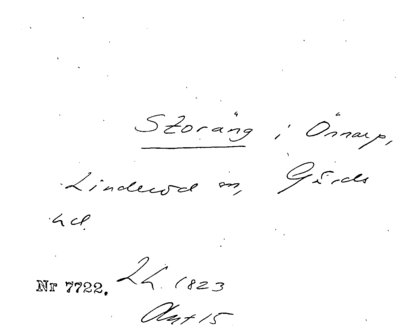 Storäng i Önnarp,
Linderöd sn, Gärds
hd.
Nr 7722. LL. 1823
Akt 15